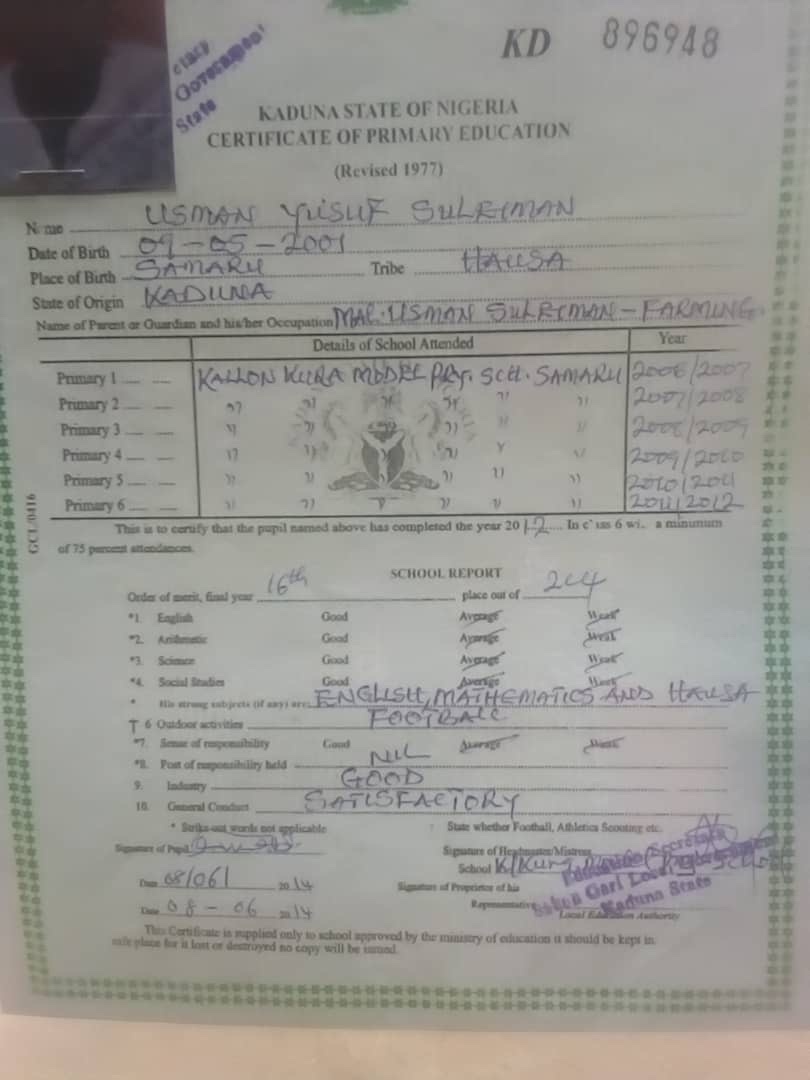 KD 896948
Government
State
KADUNA STATE OF NIGERIA
CERTIFICATE OF PRIMARY EDUCATION
(Revised 1977)
Name USMAN YUSUF SULEIMAN
Date of Birth 09-05-2001
Place of Birth SAMARU Tribe HAUSA
State of Origin KADUNA
Name of Parent or Guardian and his/her Occupation MAL. USMAN SULEIMAN - FARMING
Details of School Attended Year
Primary 1 KALLON KURA MODEL PRY. SCH. SAMARU 2006/2007
Primary 2 " " " " " " 2007/2008
Primary 3 " " " " " " 2008/2009
Primary 4 " " " " " " 2009/2010
Primary 5 " " " " " " 2010/2011
Primary 6 " " " " " " 2011/2012
GCL/0416
This is to certify that the pupil named above has completed the year 2012 In class 6 wi a minimum
of 75 percent attendances.
SCHOOL REPORT
Order of merit, final year 16th place out of 204
*1. English Good Average Weak
*2. Arithmetic Good Average Weak
*3. Science Good Average Weak
*4. Social Studies Good Average Week
* His strong subjects (if any) are: ENGLISH, MATHEMATICS AND HAUSA
T 6 Outdoor activities FOOTBALL
*7. Sense of responsibility Good Average Weak
*8. Post of responsibility held NIL
9. Industry GOOD
10. General Conduct SATISFACTORY
* Strike-out words not applicable State whether Football, Athletics Scooting etc.
Signature of Pupil Signature of Headmaster/Mistress
School K/Kura
Date 08/06/ 2014 Signature of Proprietor of his
Representative
Date 08-06 2014 Local Education Authority
Education Secretary
Sabon Gari Local
Kaduna State
This Certificate is supplied only to school approved by the ministry of education it should be kept in
safe place for if lost or destroyed no copy will be issued.